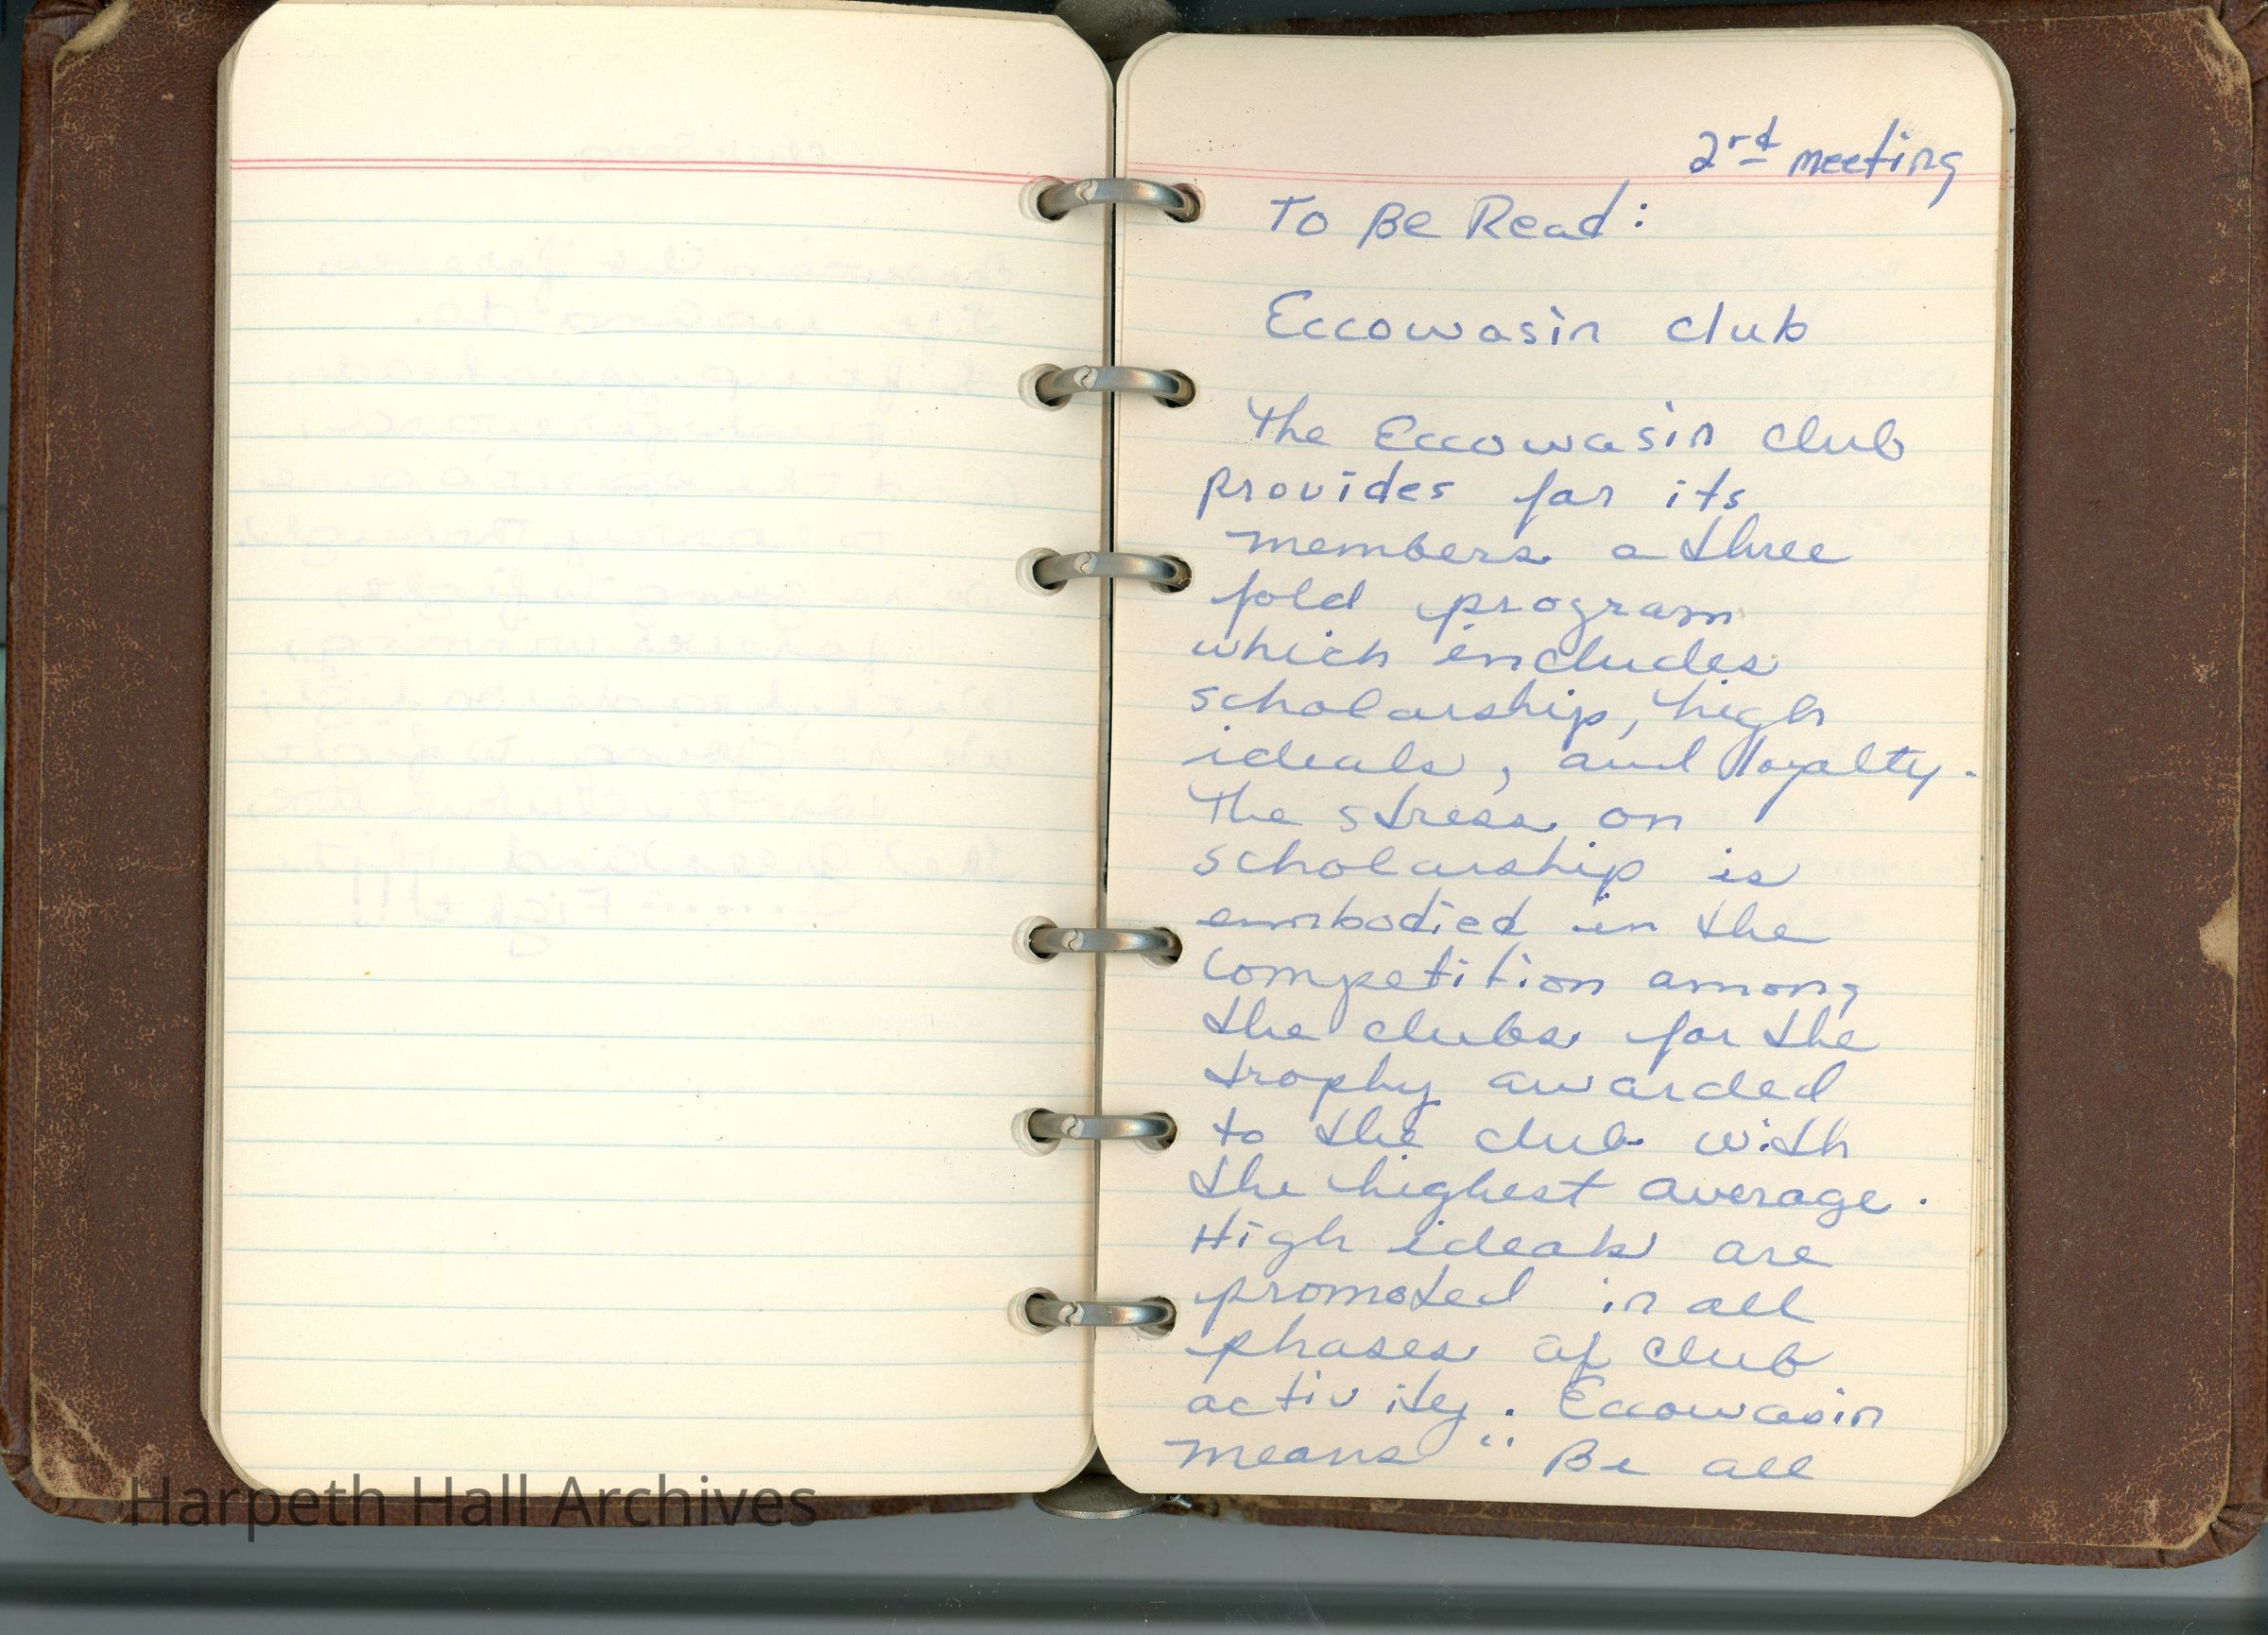 2rd meeting
To Be Read:
Eccowasin club
The Eccowasin club
provides for its
members a three
fold program
which includes
scholarship, high
ideals, and loyalty.
The stress on
scholarship is
embodied in the
competition among
the clubs for the
trophy awarded
to the club with
the highest average.
High ideals are
promoted in all
phases of club
activity. Eccowasin
means "Be all
Harpeth Hall Archives